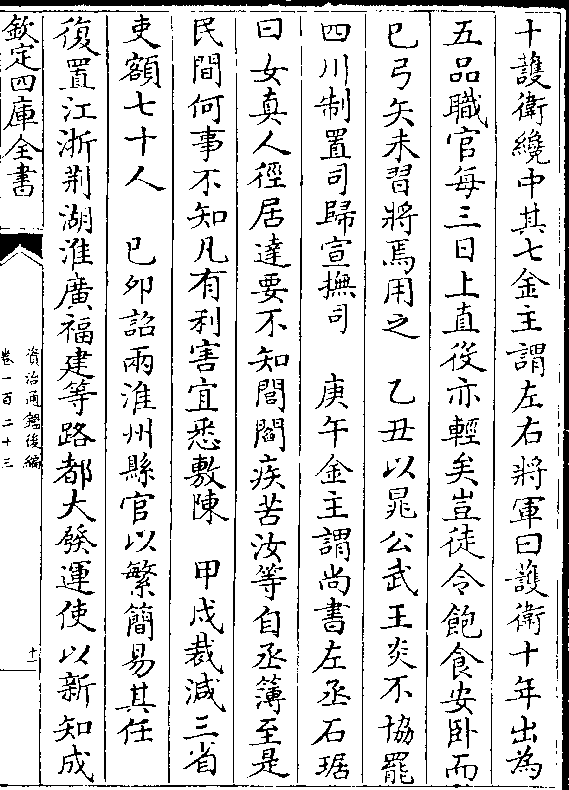 十護衛纔中其七金主謂左右將軍曰護衛十年出為
五品職官每三日上直役亦輕矣豈徒令飽食安卧而
已弓矢未習將焉用之　乙丑以晁公武王炎不協罷
四川制置司歸宣撫司　庚午金主謂尚書左丞石琚
曰女真人徑居達要不知閭閻疾苦汝等自丞簿至是
民間何事不知凡有利害宜悉敷陳　甲戍裁減三省
吏額七十人　己卯詔兩淮州縣官以繁簡易其任
復置江浙荆湖淮廣福建等路都大發運使以新知成
欽定四庫全書
資治通鑑後編
卷一百二十三
十一